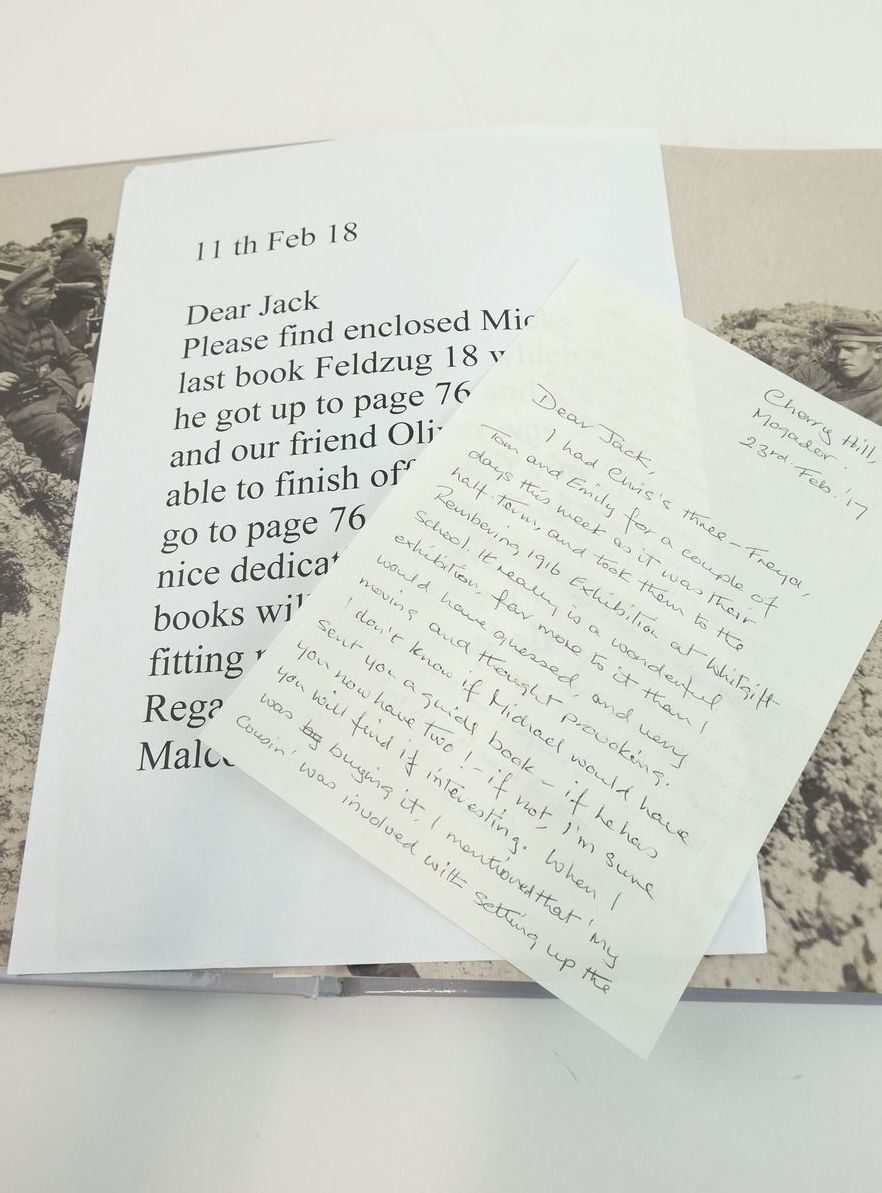 11 th Feb 18
Dear Jack
Please find enclosed Micks
last book Feldzug 18 which
he got up to page 76 and
and our friend Oli
able to finish off
go to page 76
nice dedicat
books wil
fitting
Rega
Malc
Cherry Hill,
Mogador.
23rd. Feb. '17
Dear Jack,
I had Chris's three - Freya,
Tom and Emily for a couple of
days this week as it was their
half-term, and took them to the
Rembering 1916 Exhibition at Whitgift
School. It really is a wonderful
exhibition, far more to it than I
would have guessed, and very
moving and thought provoking.
I don't know if Michael would have
sent you a guide book - if he has
you now have two! - if not, I'm sure
you will find it interesting. When I
was by buying it, I mentioned that 'my
cousin' was involved with setting up the